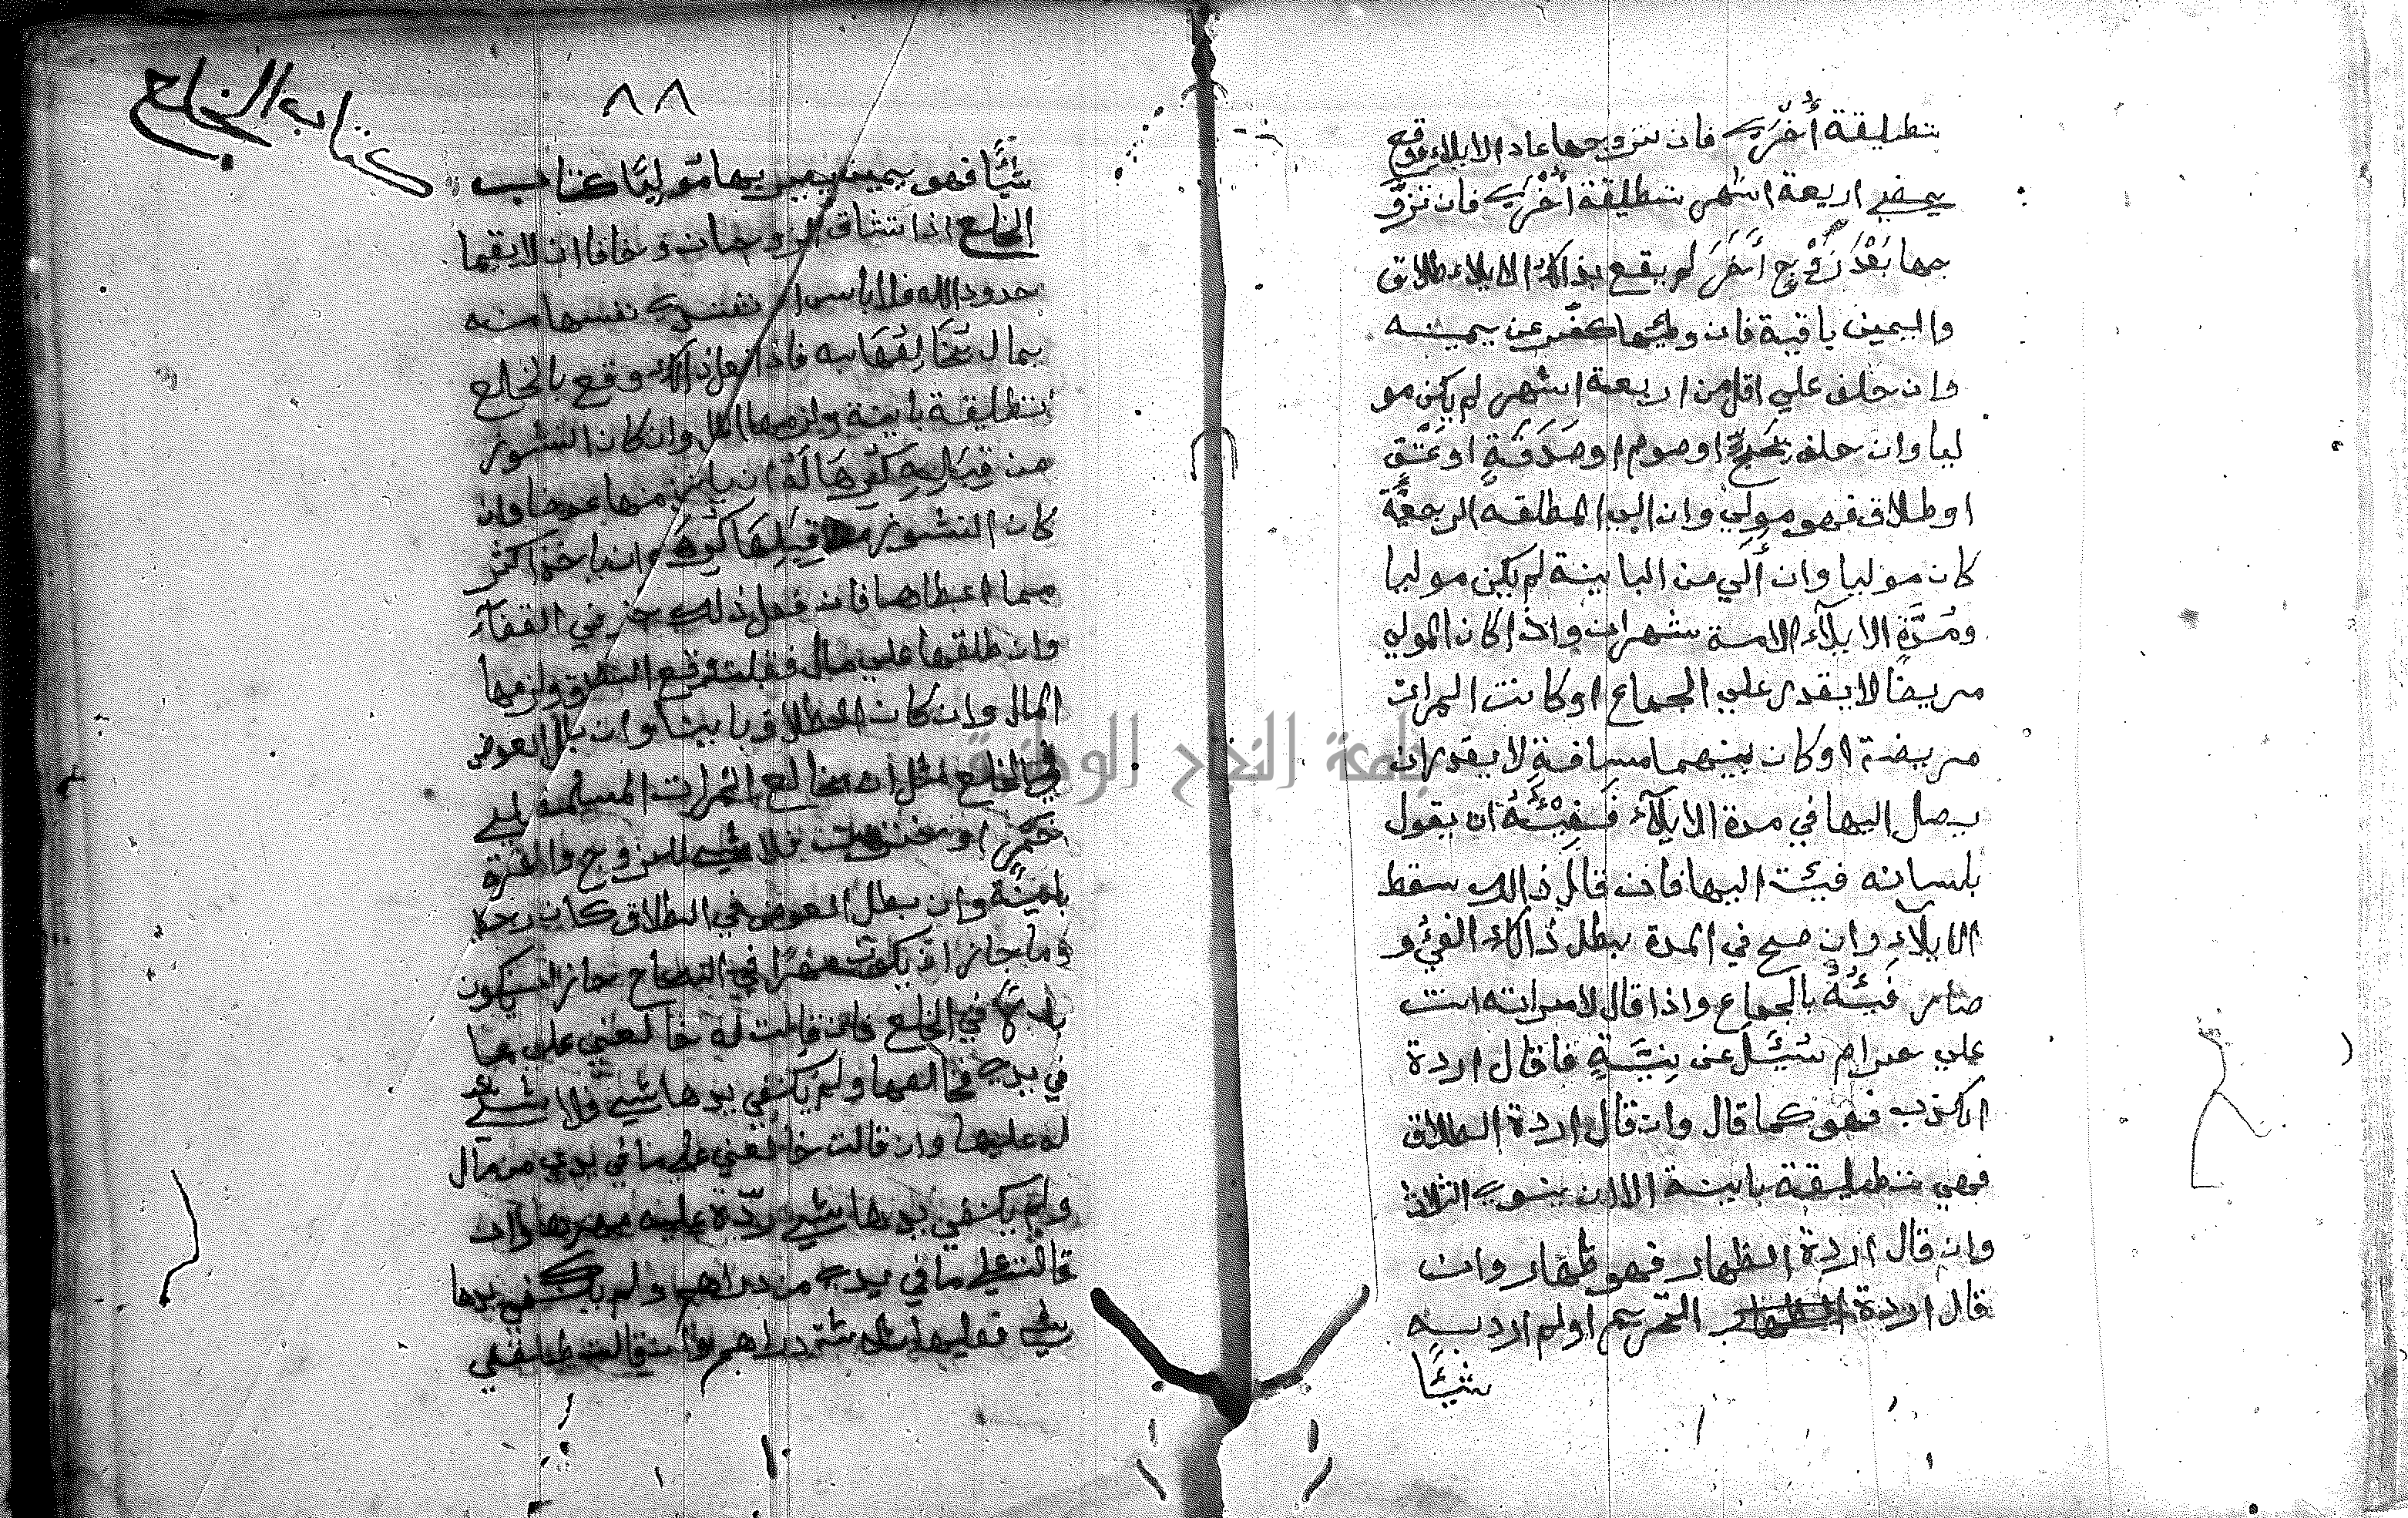 بتطليقة أُخْرَي فان تزوجها عاد الايلاء ووقع
بمضي اربعة اشهر بتطليقة اُخْرَي فان تزوَّ
جها بَعْدَ زَوْجٍ أَخَرَ لم يقع بذالك الايلاء طلاق
واليمين باقية فان وطئها كفّر عن يمينه
وان حلف علي اقل من اربعة اشهر لم يكن مو
ليا وان حلف بحَجٍّ او صوم او صَدَقَةٍ او عَتْقٍ
او طلاق فهو مولي وان الي المطلقة الرجعيَّة
كان موليا وان أَلَي من الباينة لم يكن موليا
ومُدَّة الايلآء الامة شهران واذا كان المولي
مريضًا لا يقدر علي الجماع او كانت المرات
مريضة او كان بينهما مسافة لا يقدر ان
يصل اليها في مدة الايلآء فَفِيْئُهُ ان يقول
بلسانه فيئت اليها فان قال ذالك سقط
الايلآء وان صح في المدة بطل ذالك الفيْ و
صار فَيْئُهُ بالجماع واذا قال لامراته انت
علي حرام سُئِلَ عن نِيَّتِهِ فاقال اردة
الكذب فهو كما قال وان قال اردة الطلاق
فهي تطليقة باينة الا ان ينوي الثلاث
وان قال اردة الظهار فهو ظهار وان
قال اردة التحريم او لم ارد به
شيئًا
كتاب الخلع
٨٨
شيئًا فهو يمين يصير بها موليًا كتاب
الخلع اذا تشاق الزوجان وخافا ان لا يقيما
حدود الله فلا باس ان تفتدي نفسها منه
بمال يُخَالِعُهَا به فاذا فعل ذالك وقع بالخلع
تطليقة باينة ولزمها المال وان كان النشوز
من قِبَلِهِ كُرِهَ لَهُ ان ياخذ منها عوضا وان
كان النشوز من قِبَلِهَا كُرِهَ ان ياخذ اكثر
مما اعطاها فان فعل ذلك جاز في القضآء
وان طلقها علي مال فقبلت وقع الطلاق ولزمها
المال وان كان الطلاق باينا وان بطل العوض
في الخلع مثل ان يخالع المرات المسلمة علي
خَمْرٍ او خنزير فلا شي للزوج والفرقة
باينة وان بطل العوض في الطلاق كان رجعيا
وما جاز ان يكون مهرًا في النكاح جاز ان يكون
بدلًا في الخلع فان قالت له خالعني علي ما
في يدي فخالعها ولم يكن في يدها شي فلا شي
له عليها وان قالت خالعني علي ما في يدي من مال
ولم يكن في يدها شي ردّة عليه مهرها وان
قالت علي ما في يدي من دراهم ولم يكن في يدها
شي فعليها ثلثة دراهم وان قالت طلقني
جامعة النجاح الوطنية